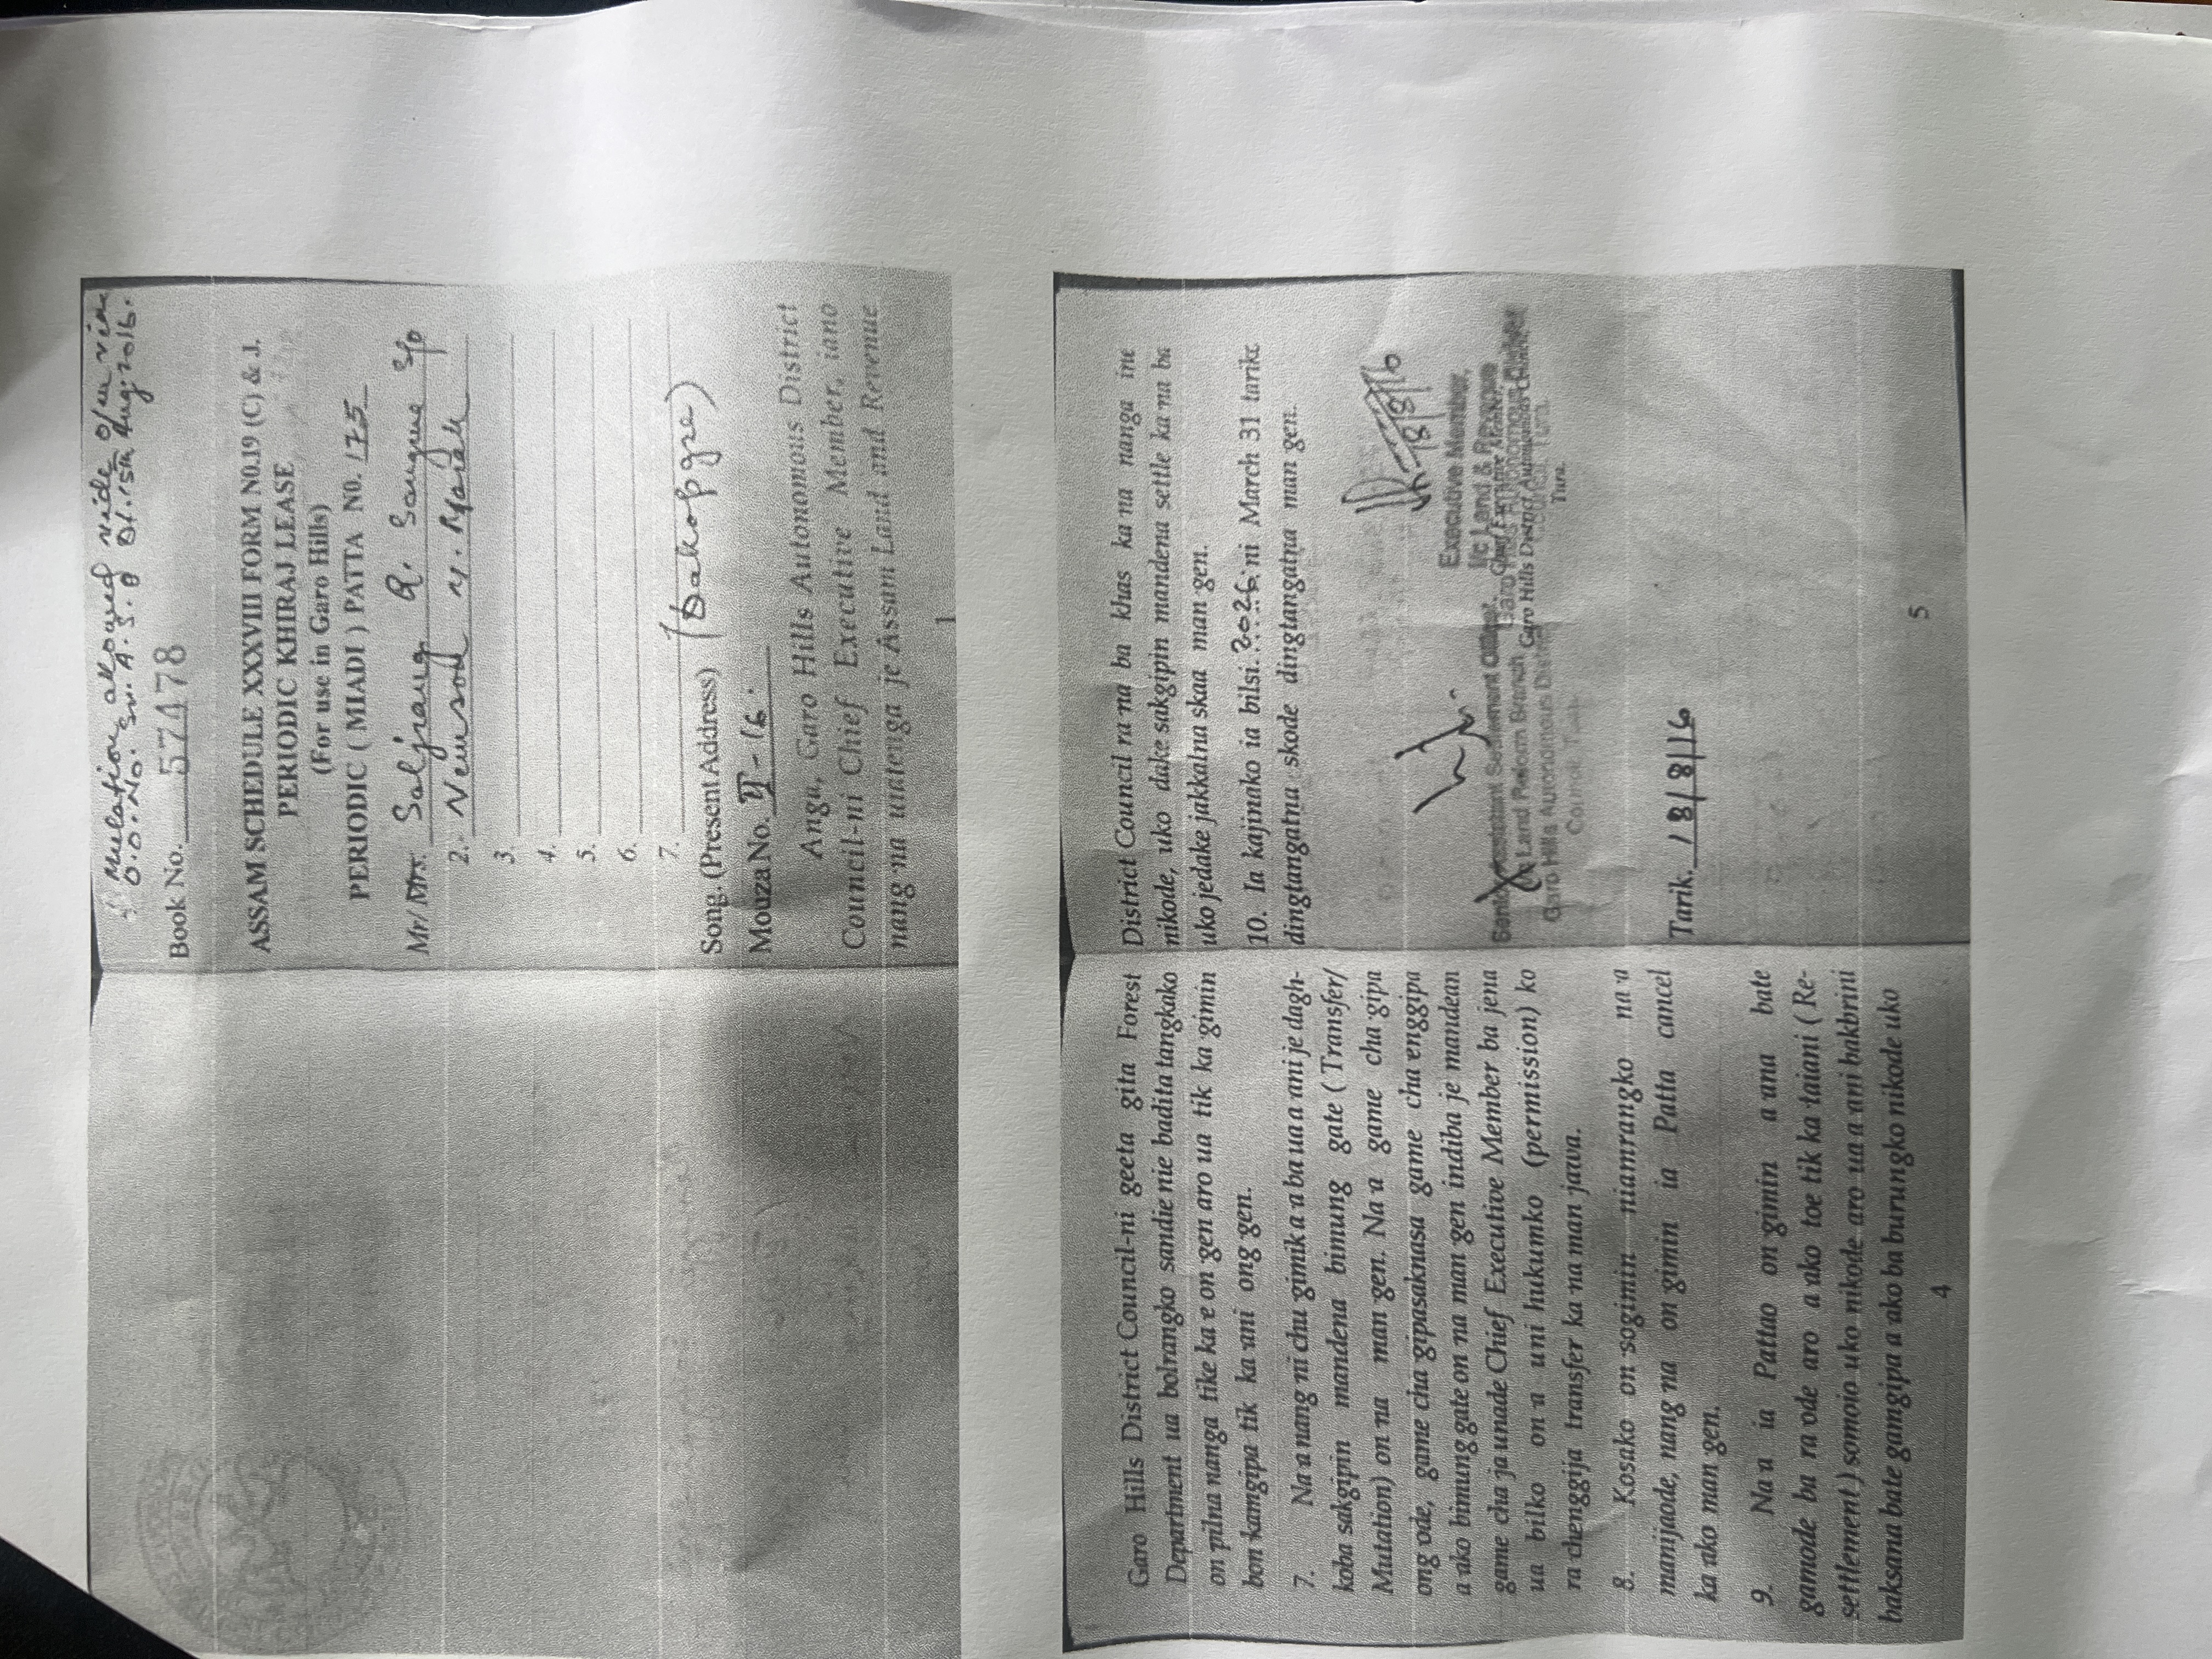 Mutation allowed vide o/m vide
O.O. No. Sn. A.S.O Dt. 15th Aug. 2016.
Book No. 574478
ASSAM SCHEDULE XXXVIII FORM N0.19 (C) & J.
PERIODIC KHIRAJ LEASE
(For use in Garo Hills)
PERIODIC ( MIADI ) PATTA N0. 175
Mr/ Saljrang R. Sangma S/o
2. Newsod M. Marak
3.
4.
5.
6.
7.
Song. (Present Address) (Dakopgre)
Mouza No. II-16.
Anga, Garo Hills Autonomous District
Council-ni Chief Executive Member, iano
nang na uatenga je Assam Land and Revenue
1
Garo Hills District Council-ni geeta gita Forest
Department ua bolrangko sandie nie badita tangkako
on pilna nanga tike ka e on gen aro ua tik ka gimin
bon kamgipa tik ka ani ong gen.
7. Na a nang ni chu gimik a a ba ua a ani je dagh-
koba sakgipin mandena bimung gate ( Transfer/
Mutation) on na man gen. Na a game cha gipa
ong ode, game cha gipasaknasa game cha enggipa
a ako bimung gate on na man gen indiba je mandean
game cha ja unade Chief Executive Member ba jena
ua bilko on a uni hukumko (permission) ko
ra chenggija transfer ka na man jawa.
8. Kosako on sogimin niamrangko na a
manijaode, nang na on gimin ia Patta cancel
ka ako man gen.
9. Na a ia Pattao on gimin a ana bate
gamode ba ra ode aro a ako toe tik ka taiani ( Re-
settlement ) somoio uko nikode aro ua a ani bakbrini
baksana bate gamgipa a ako ba burungko nikode uko
4
District Council ra na ba khas ka na nanga ine
nikode, uko dake sakgipin mandena settle ka na ba
uko jedake jakkalna skaa man gen.
10. Ia kajimako ia bilsi. 2026 ni March 31 tarikc
dingtangatna skode dingtangatna man gen.
18/8/16
Executive Member,
I/c Land & Revenue
Garo Hills District Autonomous Council,
Tura.
Assistant Settlement Officer,
Land Reform Branch
Garo Hills Autonomous District
Council, Tura.
Tarik. 18/8/16
5